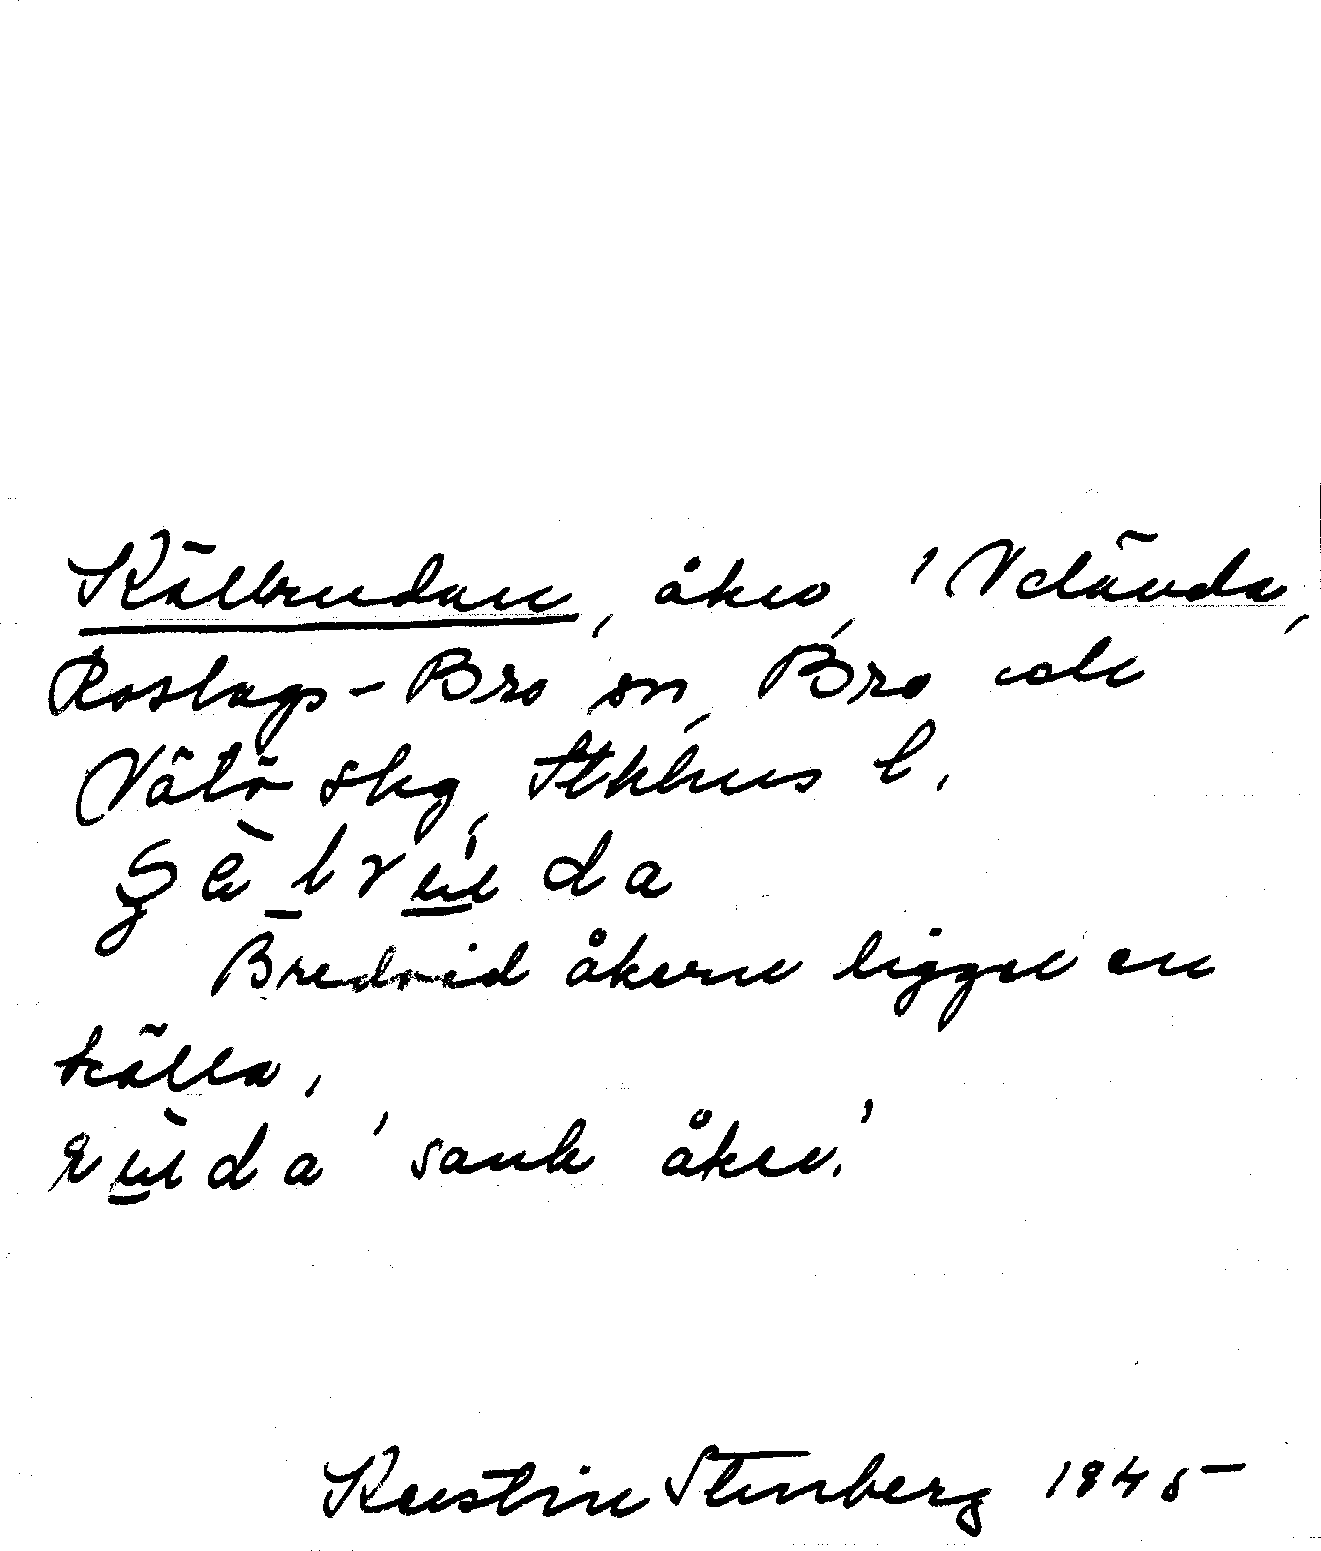 Källrudan, åker, i Vclända,
Roslags-Bro sn, Bro och
Vätö skg, Sthlms l.
Bredvid åkern ligger en
källa.
'sank åker.'
Kerstin Stenberg 1945